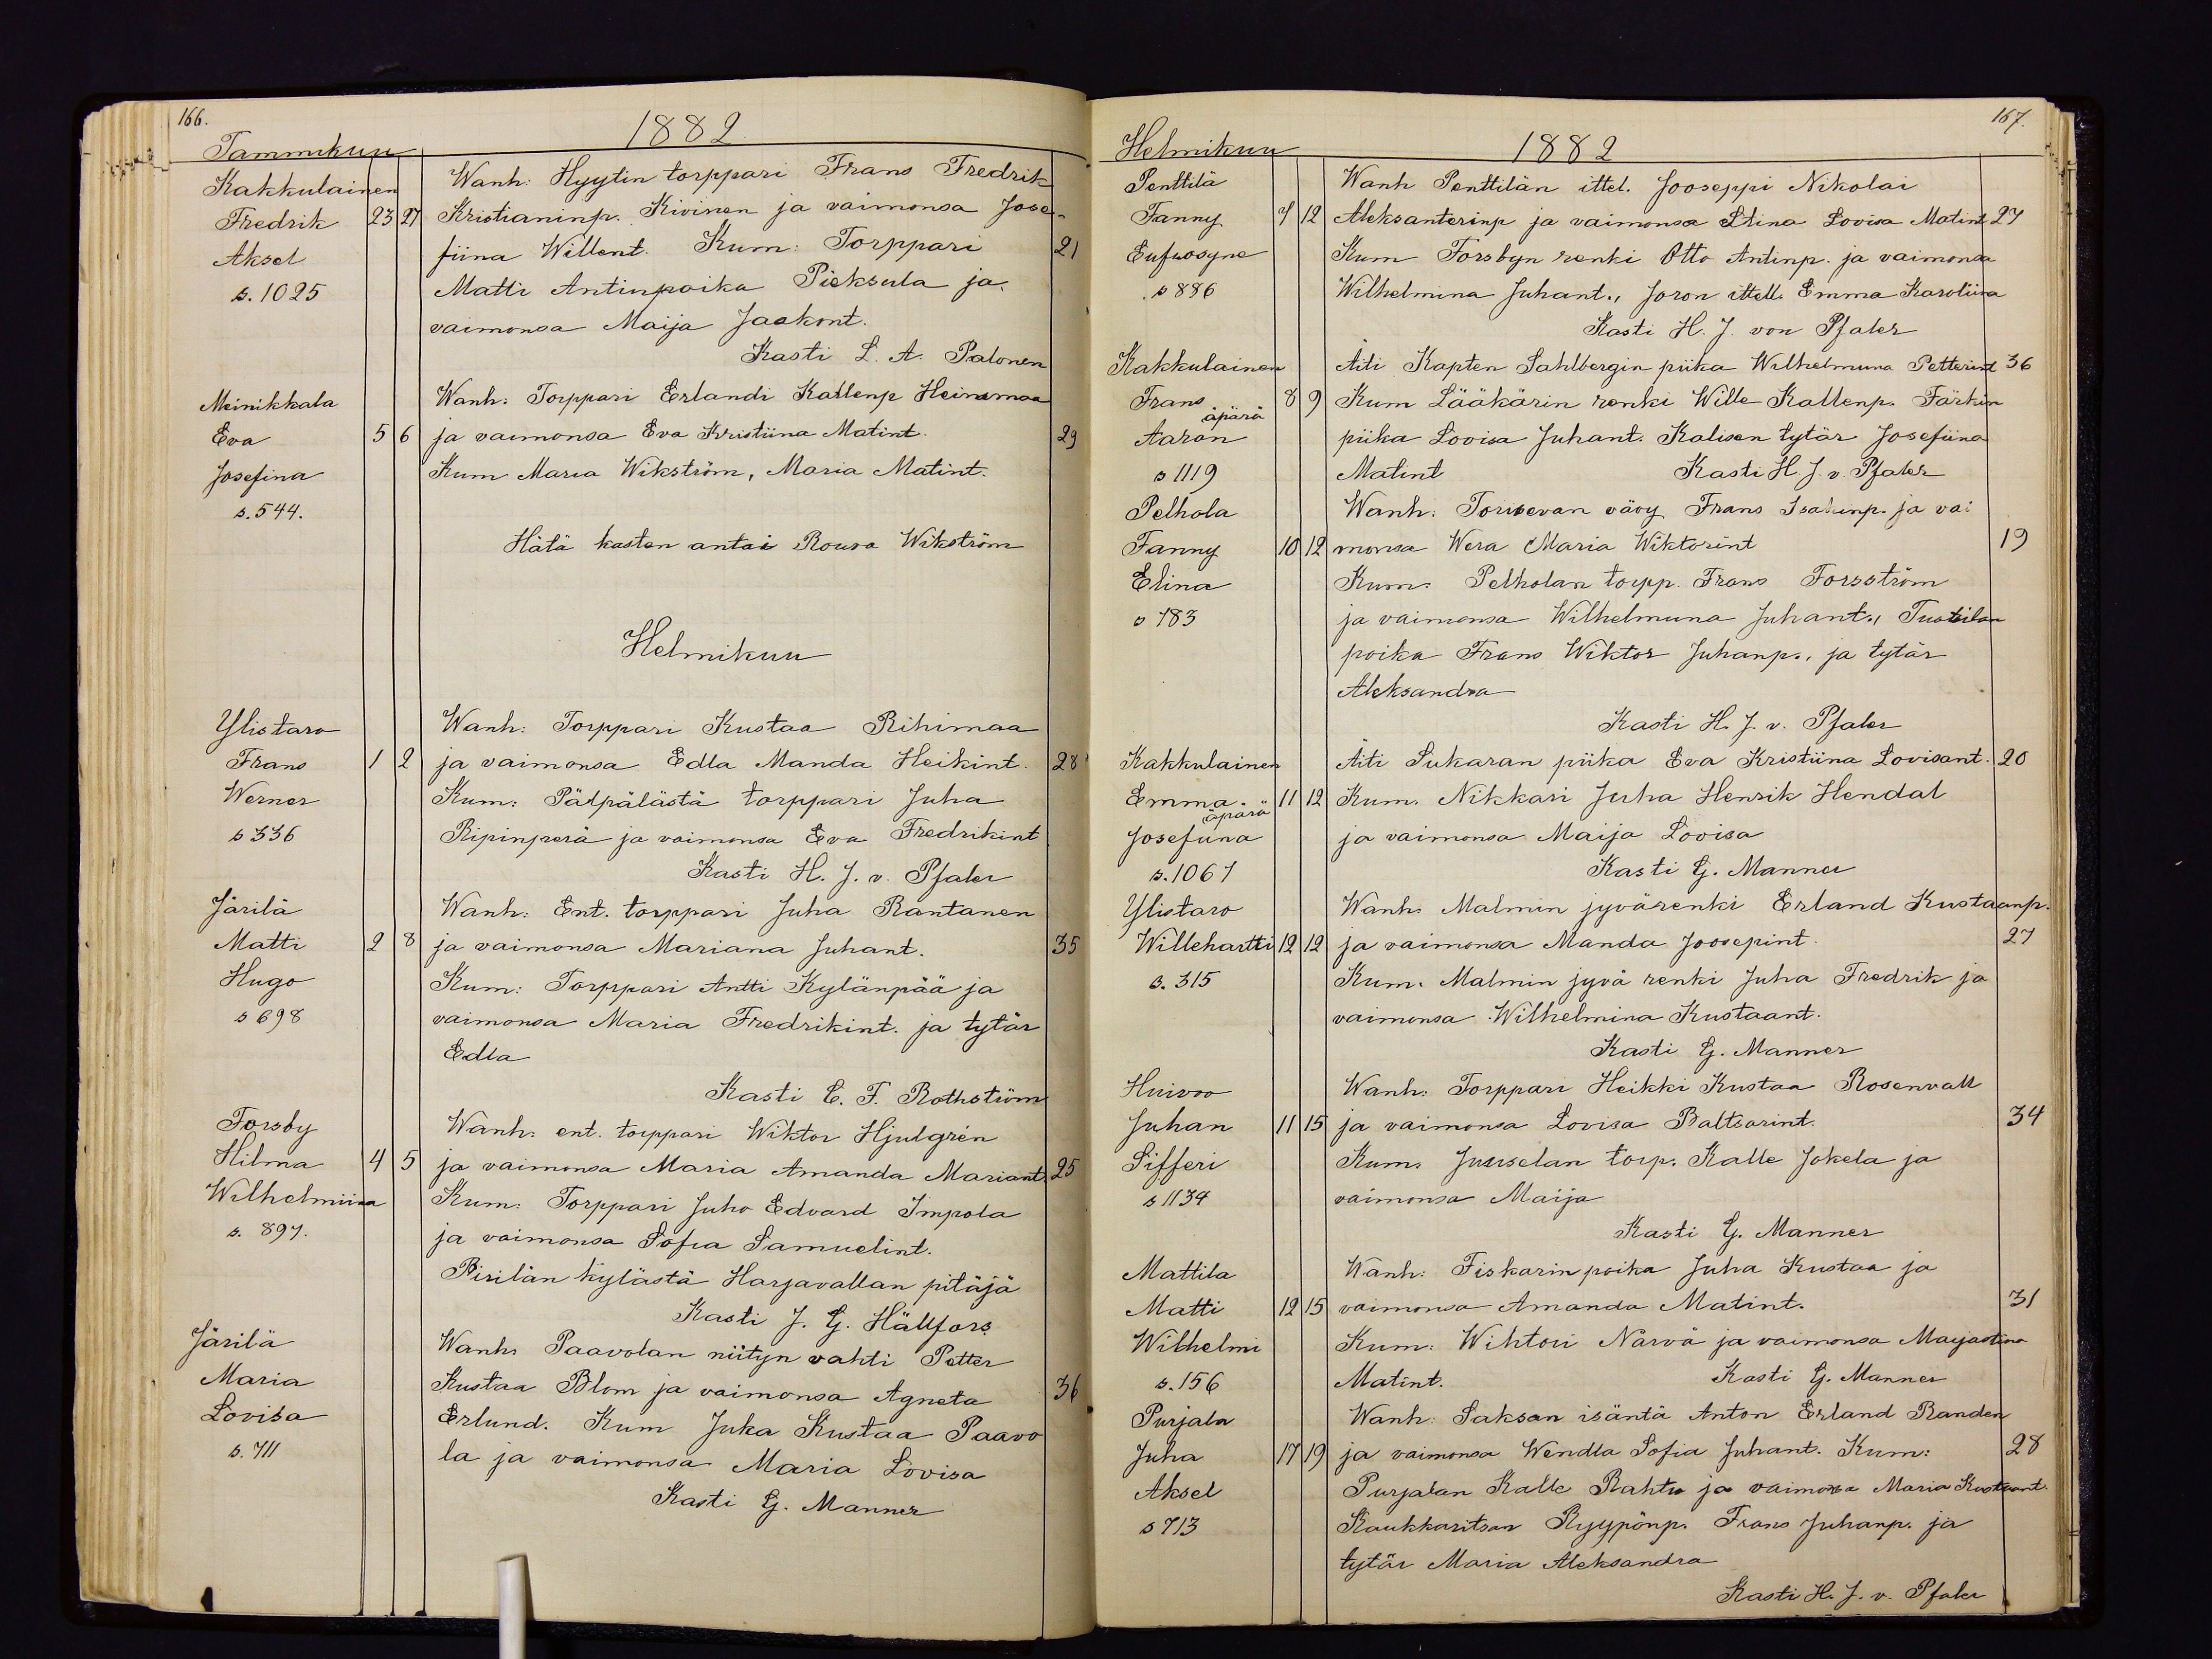 166.
1882
Tammikuu
Kakkulainen Wanh: Hyytin torppari Frans Fredrik
Fredrik 23 27 Kristianinp. Kivinen ja vaimonsa Jose-
Aksel fiina Willent. Kum: Torppari 21
s. 1025 Matti Antinpoika Pieksula ja
vaimonsa Maija Jaakont.
Kasti L. A. Palonen
Meinikkala Wanh: Torppari Erlandi Kallenp Heinamaa
Eva 5 6 ja vaimonsa Eva Kristiina Matint. 29
Josefina Kum Maria Wikström, Maria Matint.
s. 544.
Hätä kasten antoi Rouva Wikström
Helmikuu
Ylistaro Wanh: Torppari Kustaa Rihimaa
Frans 1 2 ja vaimonsa Edla Manda Heikint. 28
Werner Kum: Pälpälästä torppari Juha
s 336 Ripinperä ja vaimonsa Eva Fredrikint
Kasti H. J. v. Pfaler
Järilä Wanh: Ent. torppari Juha Rantanen
Matti 2 8 ja vaimonsa Mariana Juhant. 35
Hugo Kum: Torppari Antti Kylänpää ja
s 698 vaimonsa Maria Fredrikint. ja tytär
Edla
Kasti C. F. Rothström
Forsby Wanh: ent. torppari Wiktor Hjulgrén
Hilma 4 5 ja vaimonsa Maria Amanda Mariant. 25
Wilhelmiina Kum: Torppari Juho Edvard Impola
s. 897. ja vaimonsa Sofia Samuelint.
Pirilän kylästä Harjavallan pitäjä
Kasti J. G. Hällfors
Järilä Wanh: Paavolan niityn vahti Petter
Maria Kustaa Blom ja vaimonsa Agneta 36
Lovisa Erlund. Kum Juka Kustaa Paavo
s. 711 la ja vaimonsa Maria Lovisa
Kasti G. Manner
167.
Helmikuu 1882
Penttilä Wanh Penttilän ittel. Jooseppi Nikolai
Fanny 7 12 Aleksanterinp ja vaimonsa Stina Lovisa Matint 27
Eufrosyne Kum Forsbyn renki Otto Antinp. ja vaimonsa
s 886 Wilhelmina Juhant., Joron ittell. Emma Karoliina
Kasti H. J. von Pfaler
Kakkulainen Äiti Kapten Sahlbergin piika Wilhelmiina Petterint 36
Frans 8 9 Kum Lääkärin renki Wille Kallenp. Färkin
äpärä
Aaron piika Lovisa Juhant. Kalisen tytär Josefiina
s 1119 Matint Kasti H. J. v. Pfaler
Pelhola Wanh: Torisevan vävy Frans Isakinp. ja vai
Fanny 10 12 monsa Wera Maria Wiktorint 19
Elina Kum: Pelholan torpp. Frans Forsström
s 183 ja vaimonsa Wilhelmiina Juhant., Tuotilan
poika Frans Wiktor Juhanp., ja tytär
Aleksandra
Kasti H. J. v. Pfaler
Kakkulainen Äiti Sukaran piika Eva Kristiina Lovisant. 20
Emma 11 12 Kum. Nikkari Juha Henrik Hendal
äpärä
Josefiina ja vaimonsa Maija Lovisa
s. 1067 Kasti G. Manner
Ylistaro Wanh: Malmin jyvärenki Erland Kustaanp.
Willehartti 12 12 ja vaimonsa Manda Joosepint. 27
s. 315 Kum. Malmin jyvä renki Juha Fredrik ja
vaimonsa Wilhelmina Kustaant.
Kasti G. Manner
Huivoo Wanh: Torppari Heikki Kustaa Rosenvall
Juhan 11 15 ja vaimonsa Lovisa Baltsarint. 34
Sifferi Kum: Juuselan torp. Kalle Jokela ja
s 1134 vaimonsa Maija
Kasti G. Manner
Mattila Wanh: Fiskarin poika Juha Kustaa ja
Matti 12 15 vaimonsa Amanda Matint. 31
Wilhelmi Kum: Wihtori Närvä ja vaimonsa Maijastina
s. 156 Matint. Kasti G. Manner
Purjala Wanh: Saksan isäntä Anton Erland Randen
Juha 17 19 ja vaimonsa Wendla Sofia Juhant. Kum: 28
Aksel Purjalan Kalle Rahtu ja vaimonsa Maria Kustaant.
s 713 Kaukkaritsan Ryypönp. Frans Juhanp. ja
tytär Maria Aleksandra
Kasti H. J. v. Pfaler